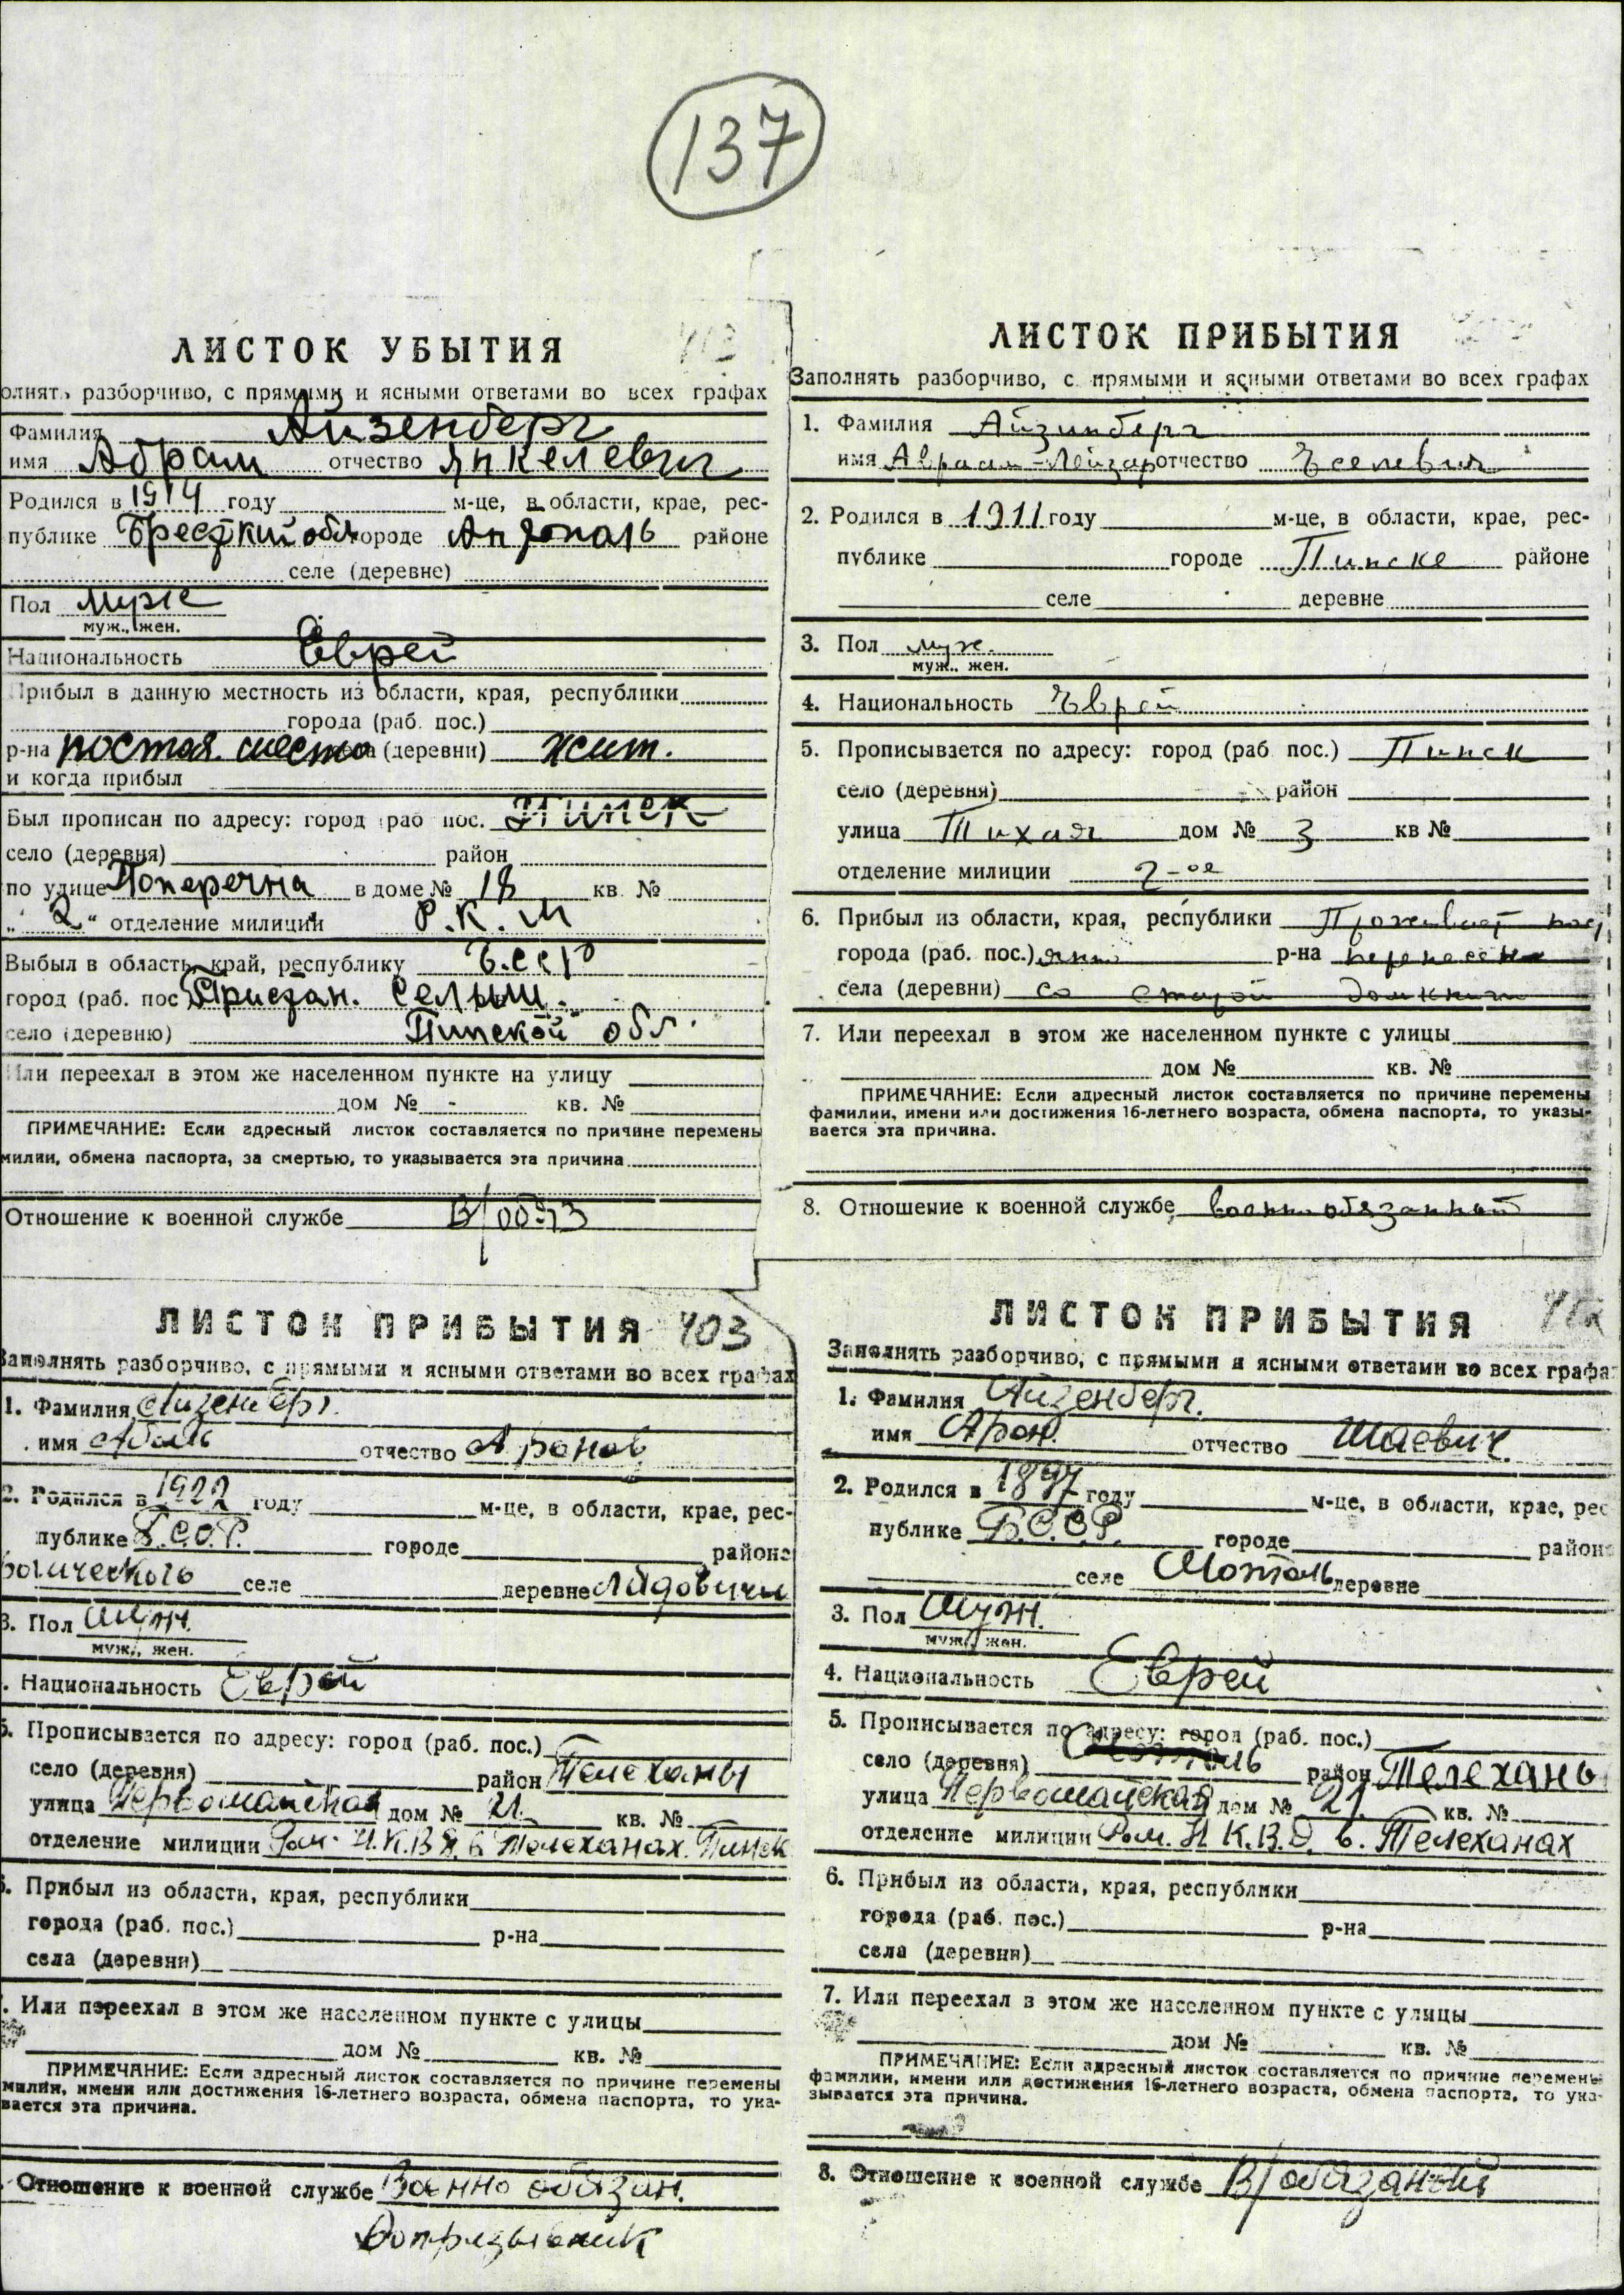 137
ЛИСТОК УБЫТИЯ
олнять разборчиво, с прямыми и ясными ответами во всех графах
Фамилия Айзенберг
имя Абрам отчество Янкелевич
Родился в 1914 году м-це, в области, крае, рес-
публике Брестский обл городе Антополь районе
селе (деревне)
Пол муж
муж., жен.
Национальность Еврей
Прибыл в данную местность из области, края, республики
города (раб. пос.)
р-на постоя. место села (деревни) жит.
и когда прибыл
Был прописан по адресу: город (раб пос. Пинск
село (деревня) район
по улице Поперечна в доме № 18 кв. №
„ 2 " отделение милиции Р.К.М
Выбыл в область, край, республику БССР
город (раб. пос.) Пристан.
село (деревню) Пинской обл.
Или переехал в этом же населенном пункте на улицу
дом № - кв. №
ПРИМЕЧАНИЕ: Если адресный листок составляется по причине перемены
милии, обмена паспорта, за смертью, то указывается эта причина
Отношение к военной службе В/обяз
ЛИСТОК ПРИБЫТИЯ
Заполнять разборчиво, с прямыми и ясными ответами во всех графах
1. Фамилия Айзинберг
имя Авраам-Лейзар отчество
2. Родился в 1911 году м-це, в области, крае, рес-
публике городе Пинске районе
селе деревне
3. Пол муж.
муж., жен.
4. Национальность Еврей
5. Прописывается по адресу: город (раб пос.) Пинск
село (деревня) район
улица Тихая дом № 3 кв №
отделение милиции 2-ое
6. Прибыл из области, края, республики Проживает пос
города (раб. пос.) янно р-на перенесен
села (деревни) со старой дом книги
7. Или переехал в этом же населенном пункте с улицы
дом № кв. №
ПРИМЕЧАНИЕ: Если адресный листок составляется по причине перемены
фамилии, имени или достижения 16-летнего возраста, обмена паспорта, то указы-
вается эта причина.
8. Отношение к военной службе военнообязанный
ЛИСТОК ПРИБЫТИЯ 403
Заполнять разборчиво, с прямыми и ясными ответами во всех графах
1. Фамилия Айзенберг.
имя отчество Аронов.
2. Родился в 1922 году м-це, в области, крае, рес-
публике Б.С.С.Р. городе районе
селе деревне
3. Пол Муж.
муж., жен.
. Национальность Еврей
5. Прописывается по адресу: город (раб. пос.)
село (деревня) район Телеханы
улица Первомайская дом № 21. кв. №
отделение милиции Н.К.В.Д. в Телеханах. Пинск
6. Прибыл из области, края, республики
города (раб. пос.) р-на
села (деревни)
. Или переехал в этом же населенном пункте с улицы
дом № кв. №
ПРИМЕЧАНИЕ: Если адресный листок составляется по причине перемены
милии, имени или достижения 16-летнего возраста, обмена паспорта, то ука-
вается эта причина.
. Отношение к военной службе Военно обязан.
Допризывник
ЛИСТОК ПРИБЫТИЯ
Заполнять разборчиво, с прямыми и ясными ответами во всех графа
1. Фамилия Айзенберг.
имя Арон. отчество Шаевич.
2. Родился в 1897 году м-це, в области, крае, рес
публике Б.С.С.Р. городе районе
селе Мотоль деревне
3. Пол Муж.
муж., жен.
4. Национальность Еврей
5. Прописывается по адресу: город (раб. пос.)
село (деревня) район Телехань
улица Первомайская дом № 21. кв. №
отделение милиции Н.К.В.Д. в. Телеханах
6. Прибыл из области, края, республики
города (раб. пос.) р-на
села (деревни)
7. Или переехал в этом же населенном пункте с улицы
дом № кв. №
ПРИМЕЧАНИЕ: Если адресный листок составляется по причине перемены
фамилии, имени или достижения 16-летнего возраста, обмена паспорта, то ука-
зывается эта причина.
8. Отношение к военной службе В/обязаный